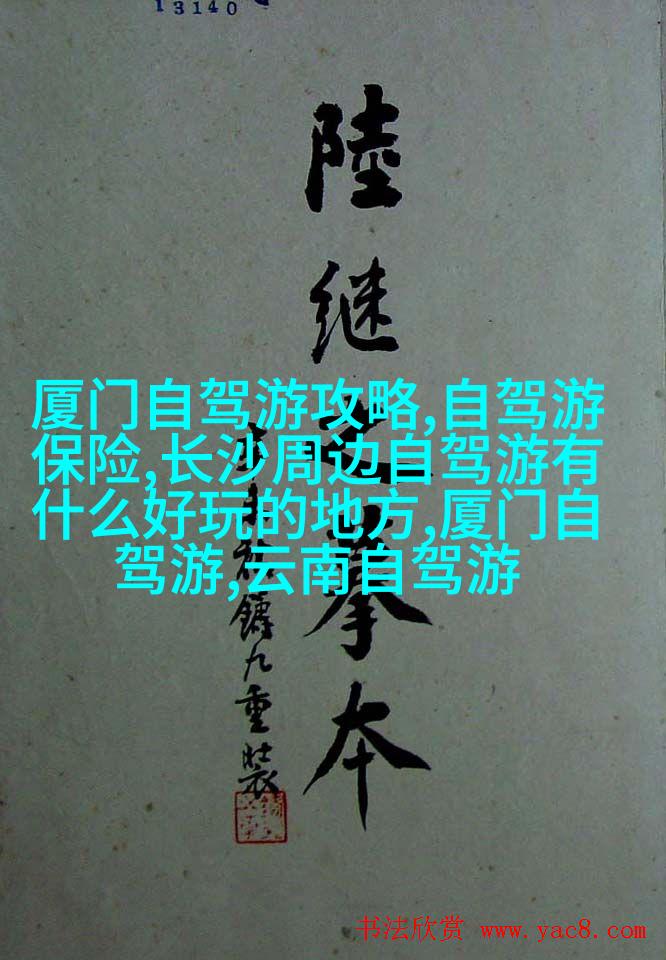 13140
陸继之摹本
鑄九重裝
厦门自驾游攻略,自驾游
保险,长沙周边自驾游有
什么好玩的地方,厦门自
驾游,云南自驾游
书法欣赏 www.yac8.com